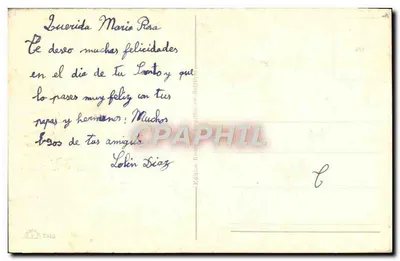 Querida Maria Rosa
Te deseo muchas felicidades
en el dia de tu Santo y que
lo pases muy feliz con tus
papas y hermanos; Muchos
besos de tus amiguis
Lolin Diaz
CPARHILL
C